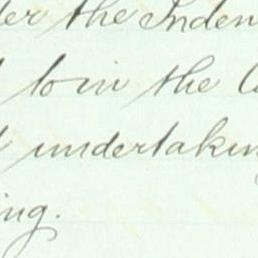 der the Inden
to in the
undertakin
ing.